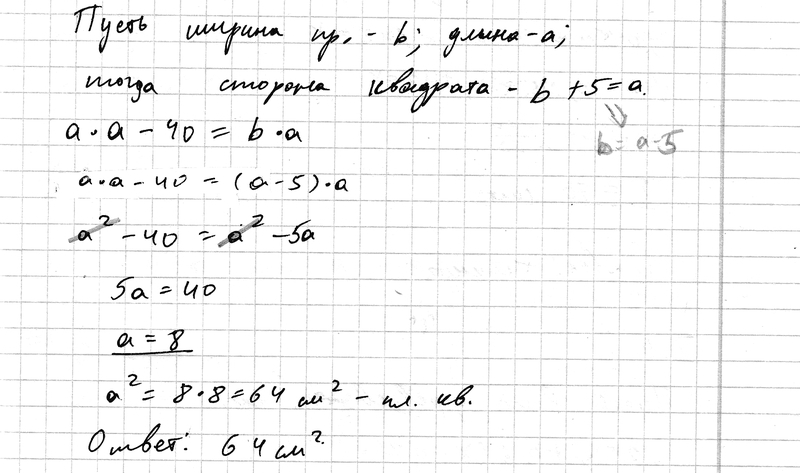 Пусть ширина пр. - b; длина - a;
тогда сторона квадрата - b + 5 = a.
b = a - 5
a • a - 40 = b • a
a • a - 40 = (a - 5) • a
a² - 40 = a² - 5a
5a = 40
a = 8
a² = 8 • 8 = 64 см² - пл. кв.
Ответ: 64 см².